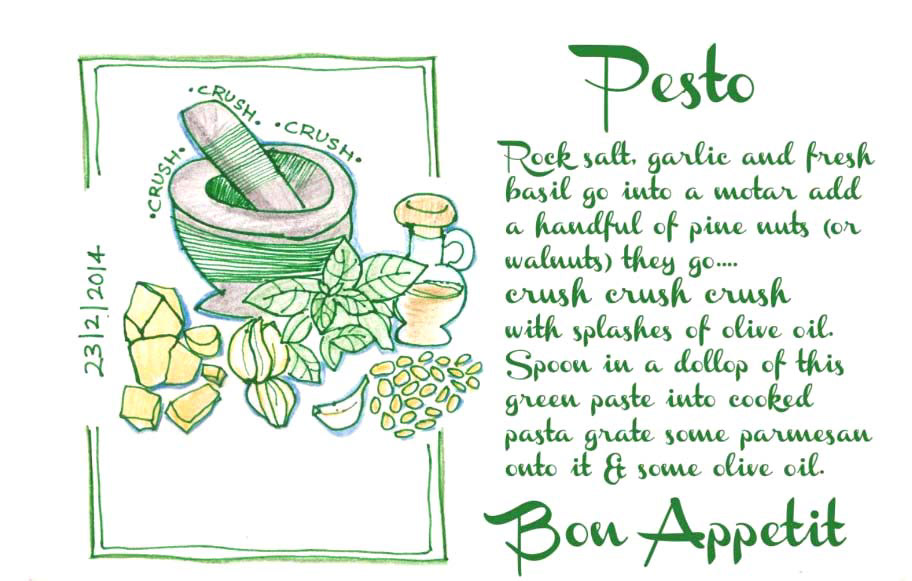 •CRUSH•
•CRUSH.
•CRUSH•
23/2/2014
Pesto
Rock salt, garlic and fresh
basil go into a motar add
a handful of pine nuts (or
walnuts) they go....
crush crush crush
with splashes of olive oil.
Spoon in a dollop of this
green paste into cooked
pasta grate some parmesan
onto it & some olive oil.
Bon Appetit